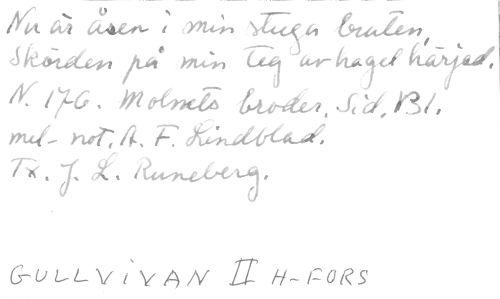 Nu är åsen i min stuga bruten,
Skörden på min teg av hagel härjad.
N. 176. Molnets broder. Sid. 131.
mel- not. A. F. Lindblad.
Tx. J. L. Runeberg.
GULLVIVAN II H-FORS